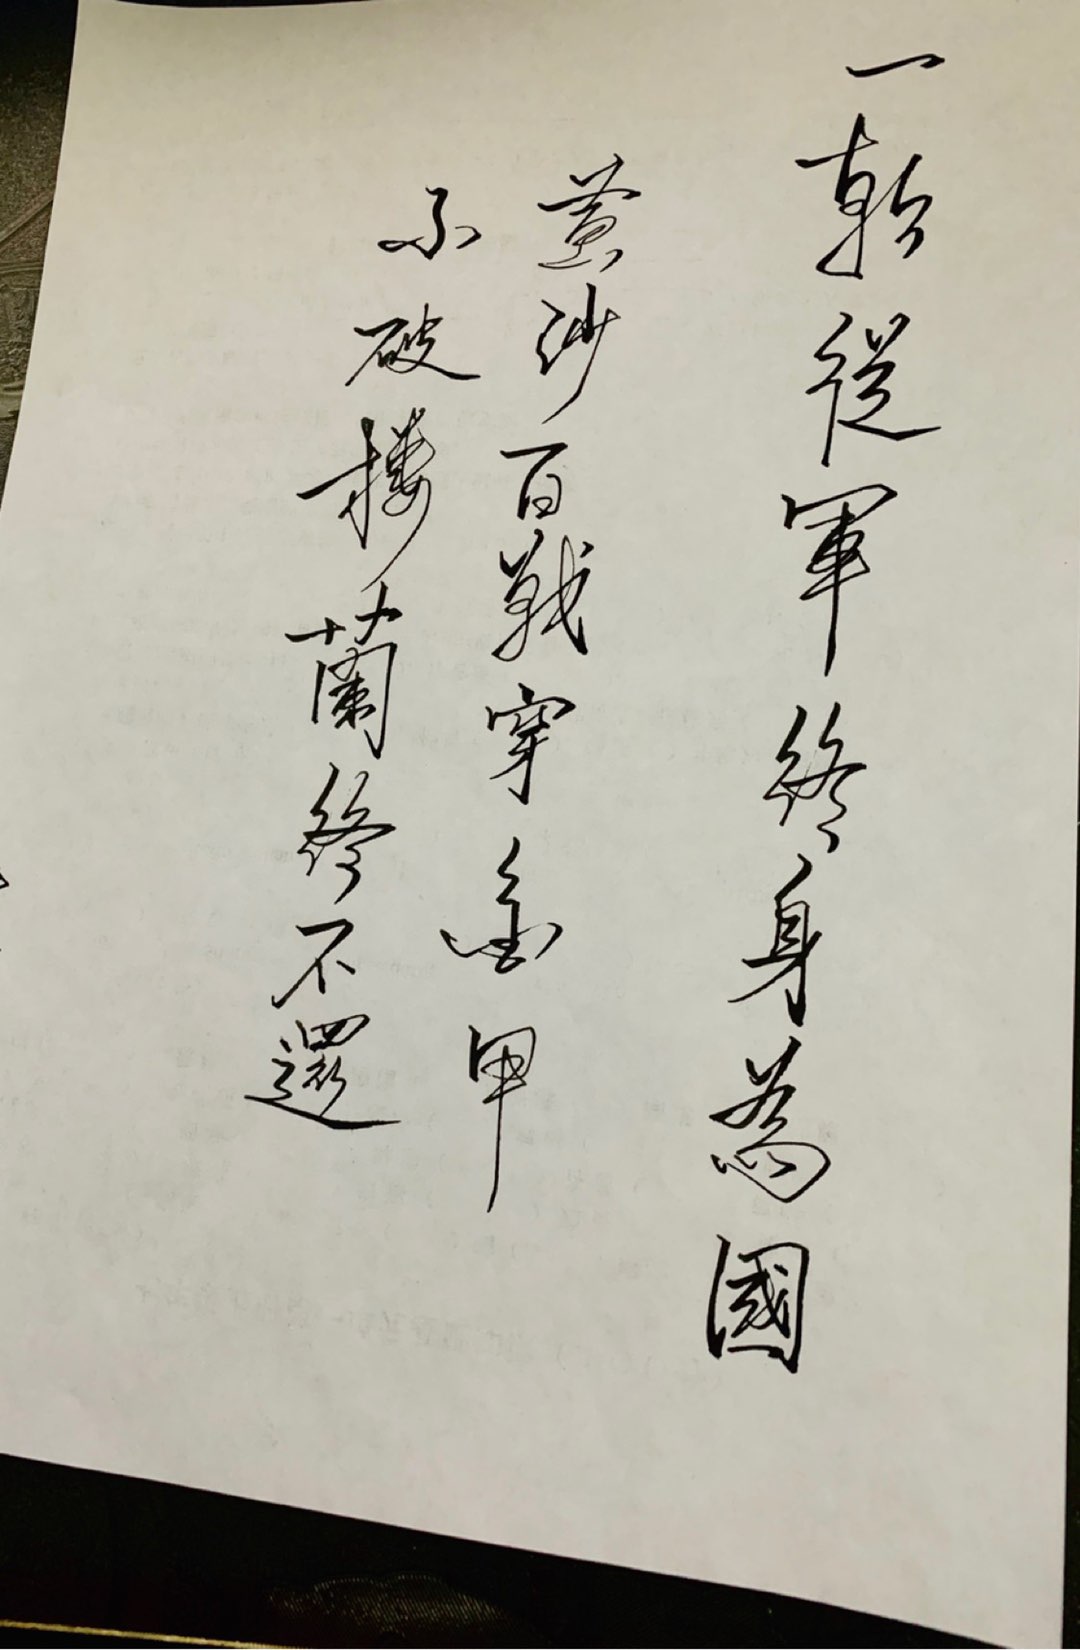 一朝從軍終身為國
黃沙百戰穿金甲
不破樓蘭終不還